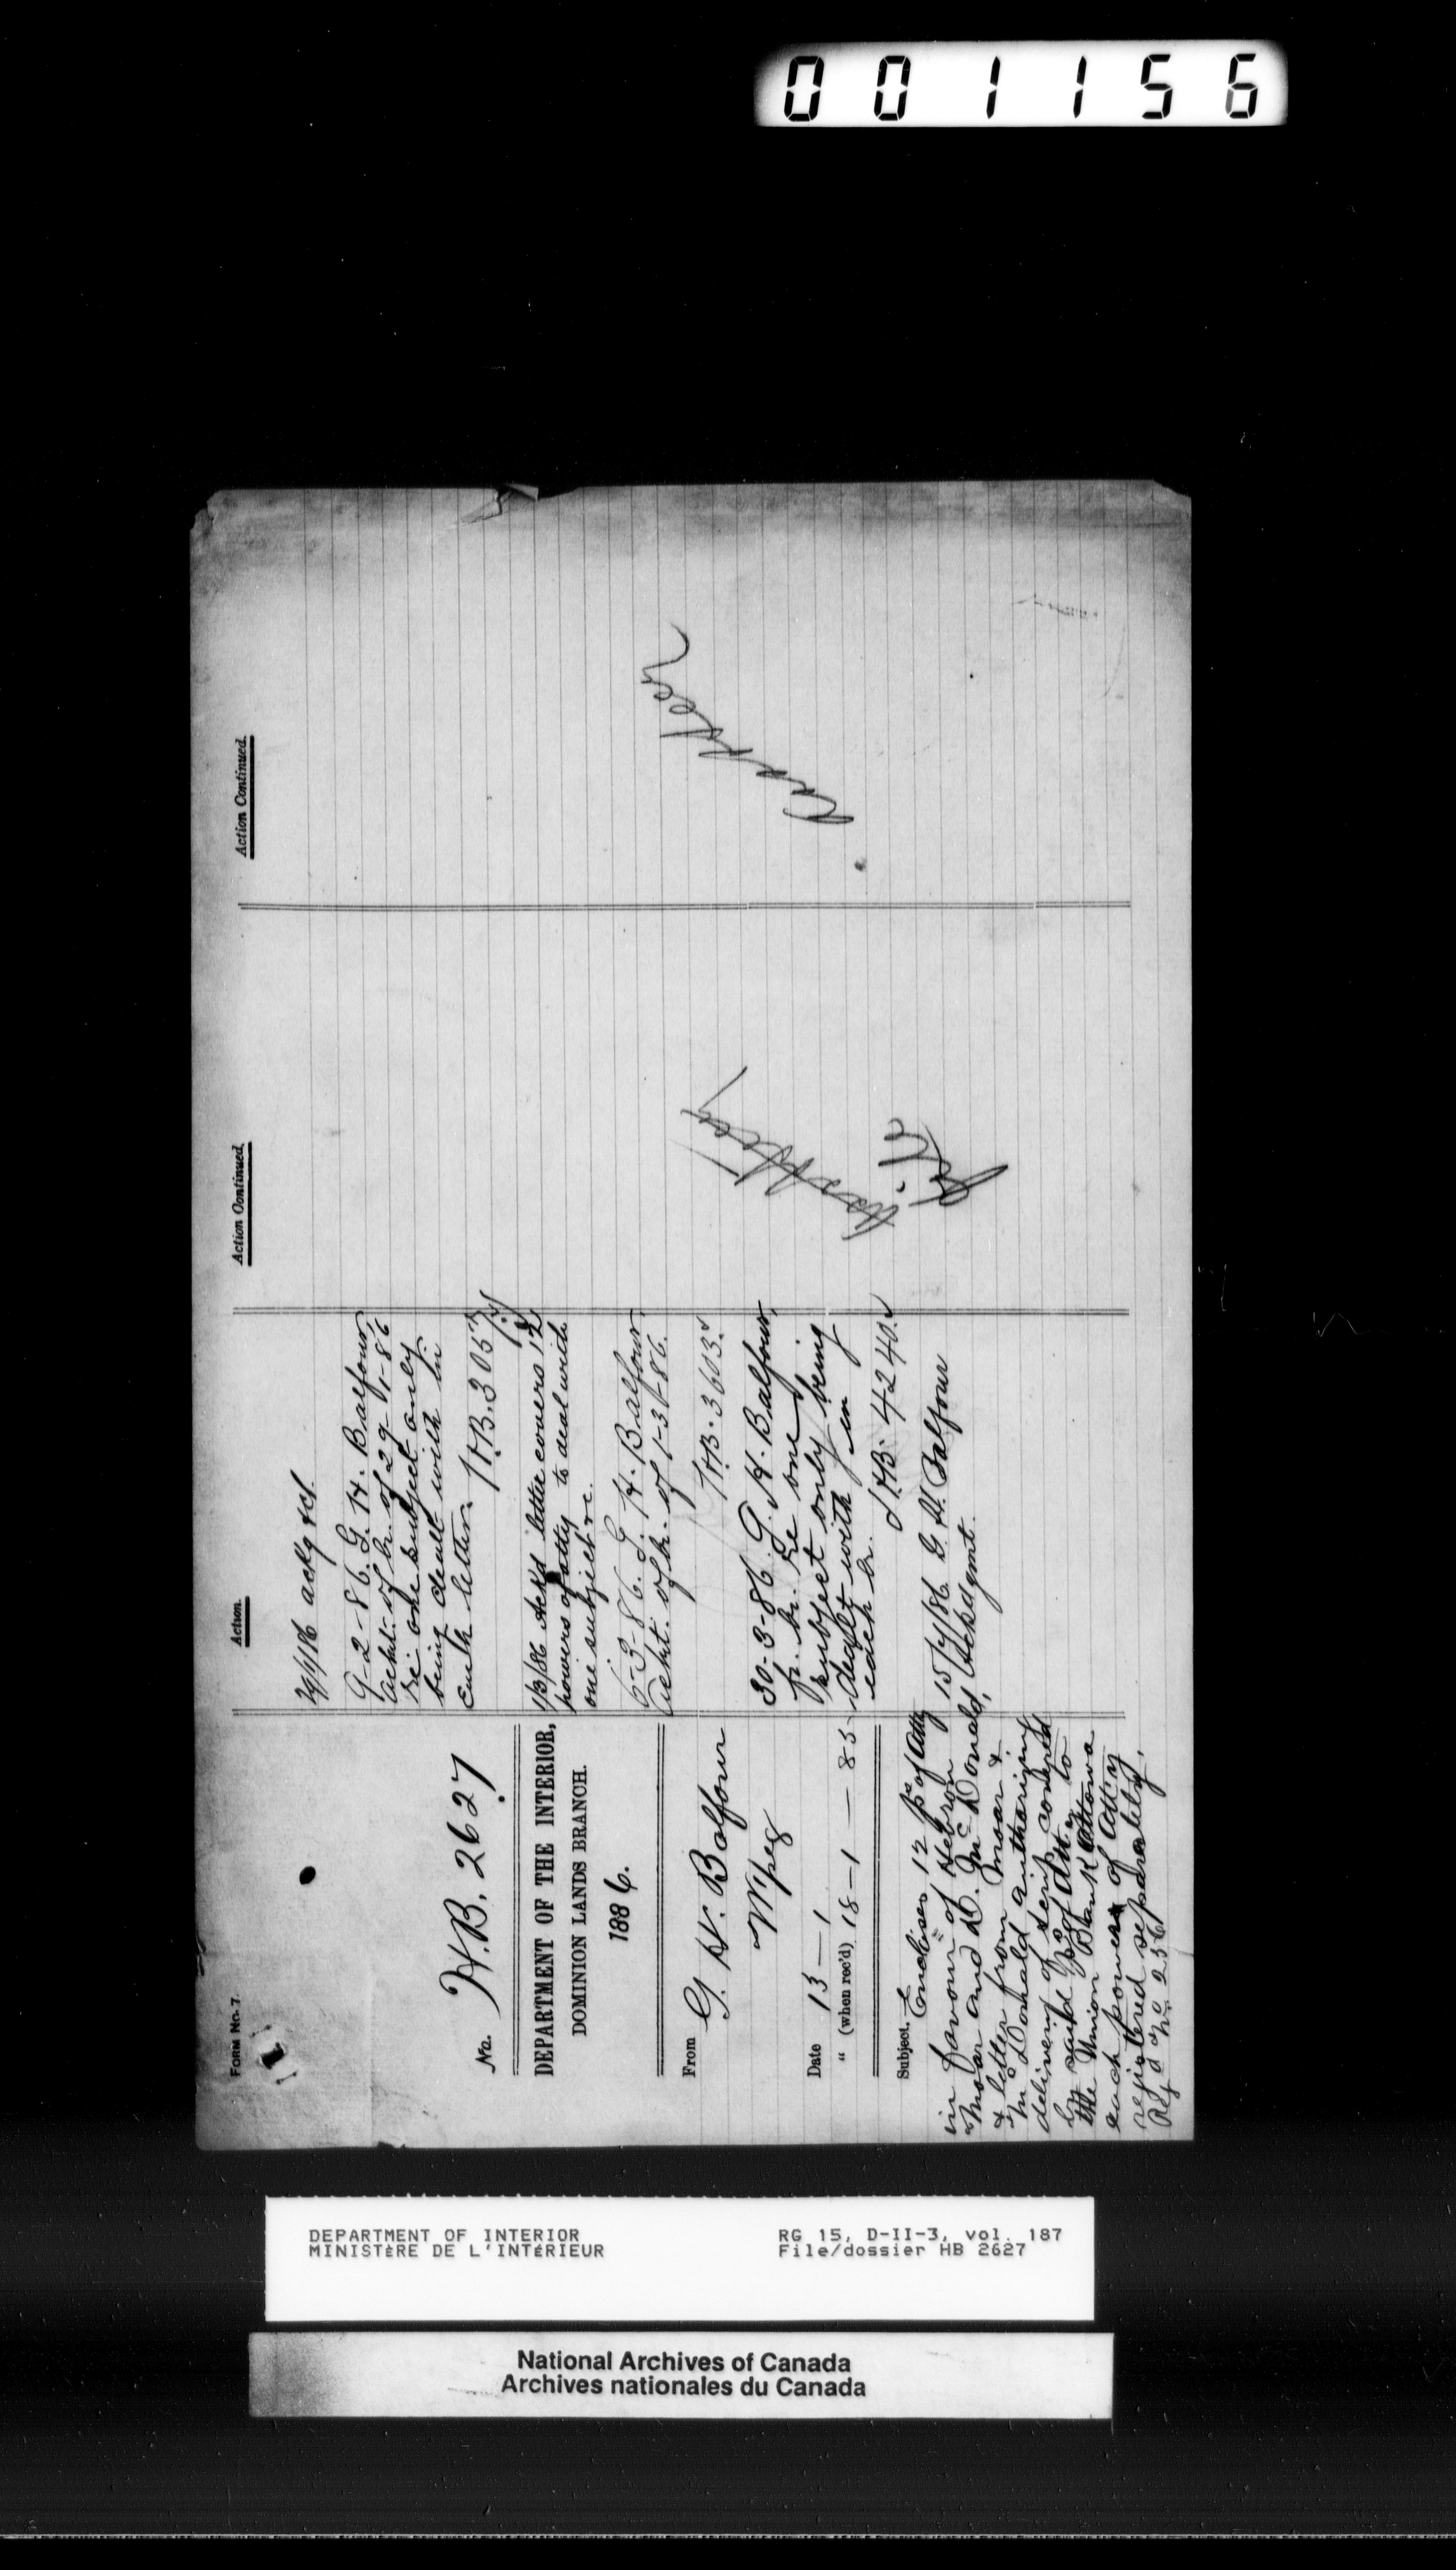 001156
FORM No. 7.
No. H.B. 2627
DEPARTMENT OF THE INTERIOR,
DOMINION LANDS BRANCH.
1886.
From G. H. Balfour
W'peg
Date 13 — 1
" (when rec'd) 18 — 1 — 85
Subject. Encloses 12 ps of Atty
in favour of Hebron
Moar and D. McDonald,
& letter from Moar &
McDonald authorizing
delivery of scrip covered
by said ps of Atty to
the Union Bank Ottawa
each power of Atty
registered separately.
Reg'd No. 256
Action.
29/1/86 ackg rct.
9-2-86. G. H. Balfour,
Ackt. of lr. of 29-1-86
Re one subject only
being dealt with in
each letter. HB. 3053
1/3/86 Ackd letter covers 12
powers of atty to deal with
one subject &c.
6-3-86. G. H. Balfour,
Ackt. of lr. of 1-3-86.
HB. 3603.
30-3-86. G. H. Balfour,
fr. lr. re one
subject only being
dealt with in
each lr.
HB. 4240.
15/4/86 G. H. Balfour
Ackdgmt.
Action Continued.
Action Continued.
DEPARTMENT OF INTERIOR
MINISTÈRE DE L'INTÉRIEUR
RG 15, D-II-3, vol. 187
File/dossier HB 2627
National Archives of Canada
Archives nationales du Canada